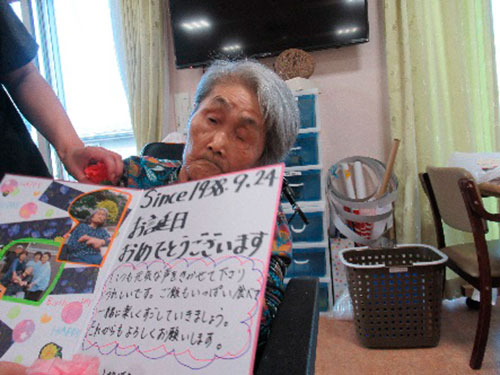 Since 1938.9.24
お誕生日
おめでとうございます
いつも元気な声をきかせて下さり
うれしいです。ご飯もいっぱい食べて
一緒に楽しくすごしていきましょう。
これからもよろしくお願いします。
HAPPY